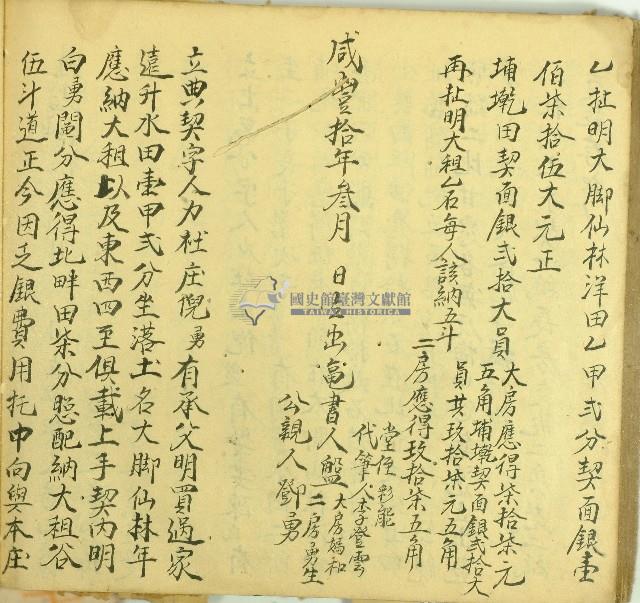 乙扯明大脚仙林洋田乙甲弍分契面銀壹
佰柒拾伍大元正
埔墘田契面銀弍拾大員
大房應得柒拾柒元
五角埔墘契面銀弍拾大
員共玖拾柒元五角
再扯明大租乙石每人該納五斗
二房應得玖拾柒五角
堂侄彩能
代筆人李登雲
咸豐拾年叁月 日立出鬮書人盤
大房媽和
二房勇生
公親人鄧勇
國史館臺灣文獻館
TAIWAN HISTORICA
立典契字人力社庄倪勇有承父明買過家
遠升水田壹甲弍分坐落土名大脚仙林年
應納大租以及東西四至俱載上手契內明
白勇鬮分應得北畔田柒分照配納大租谷
伍斗道正今因乏銀費用托中向與本庄